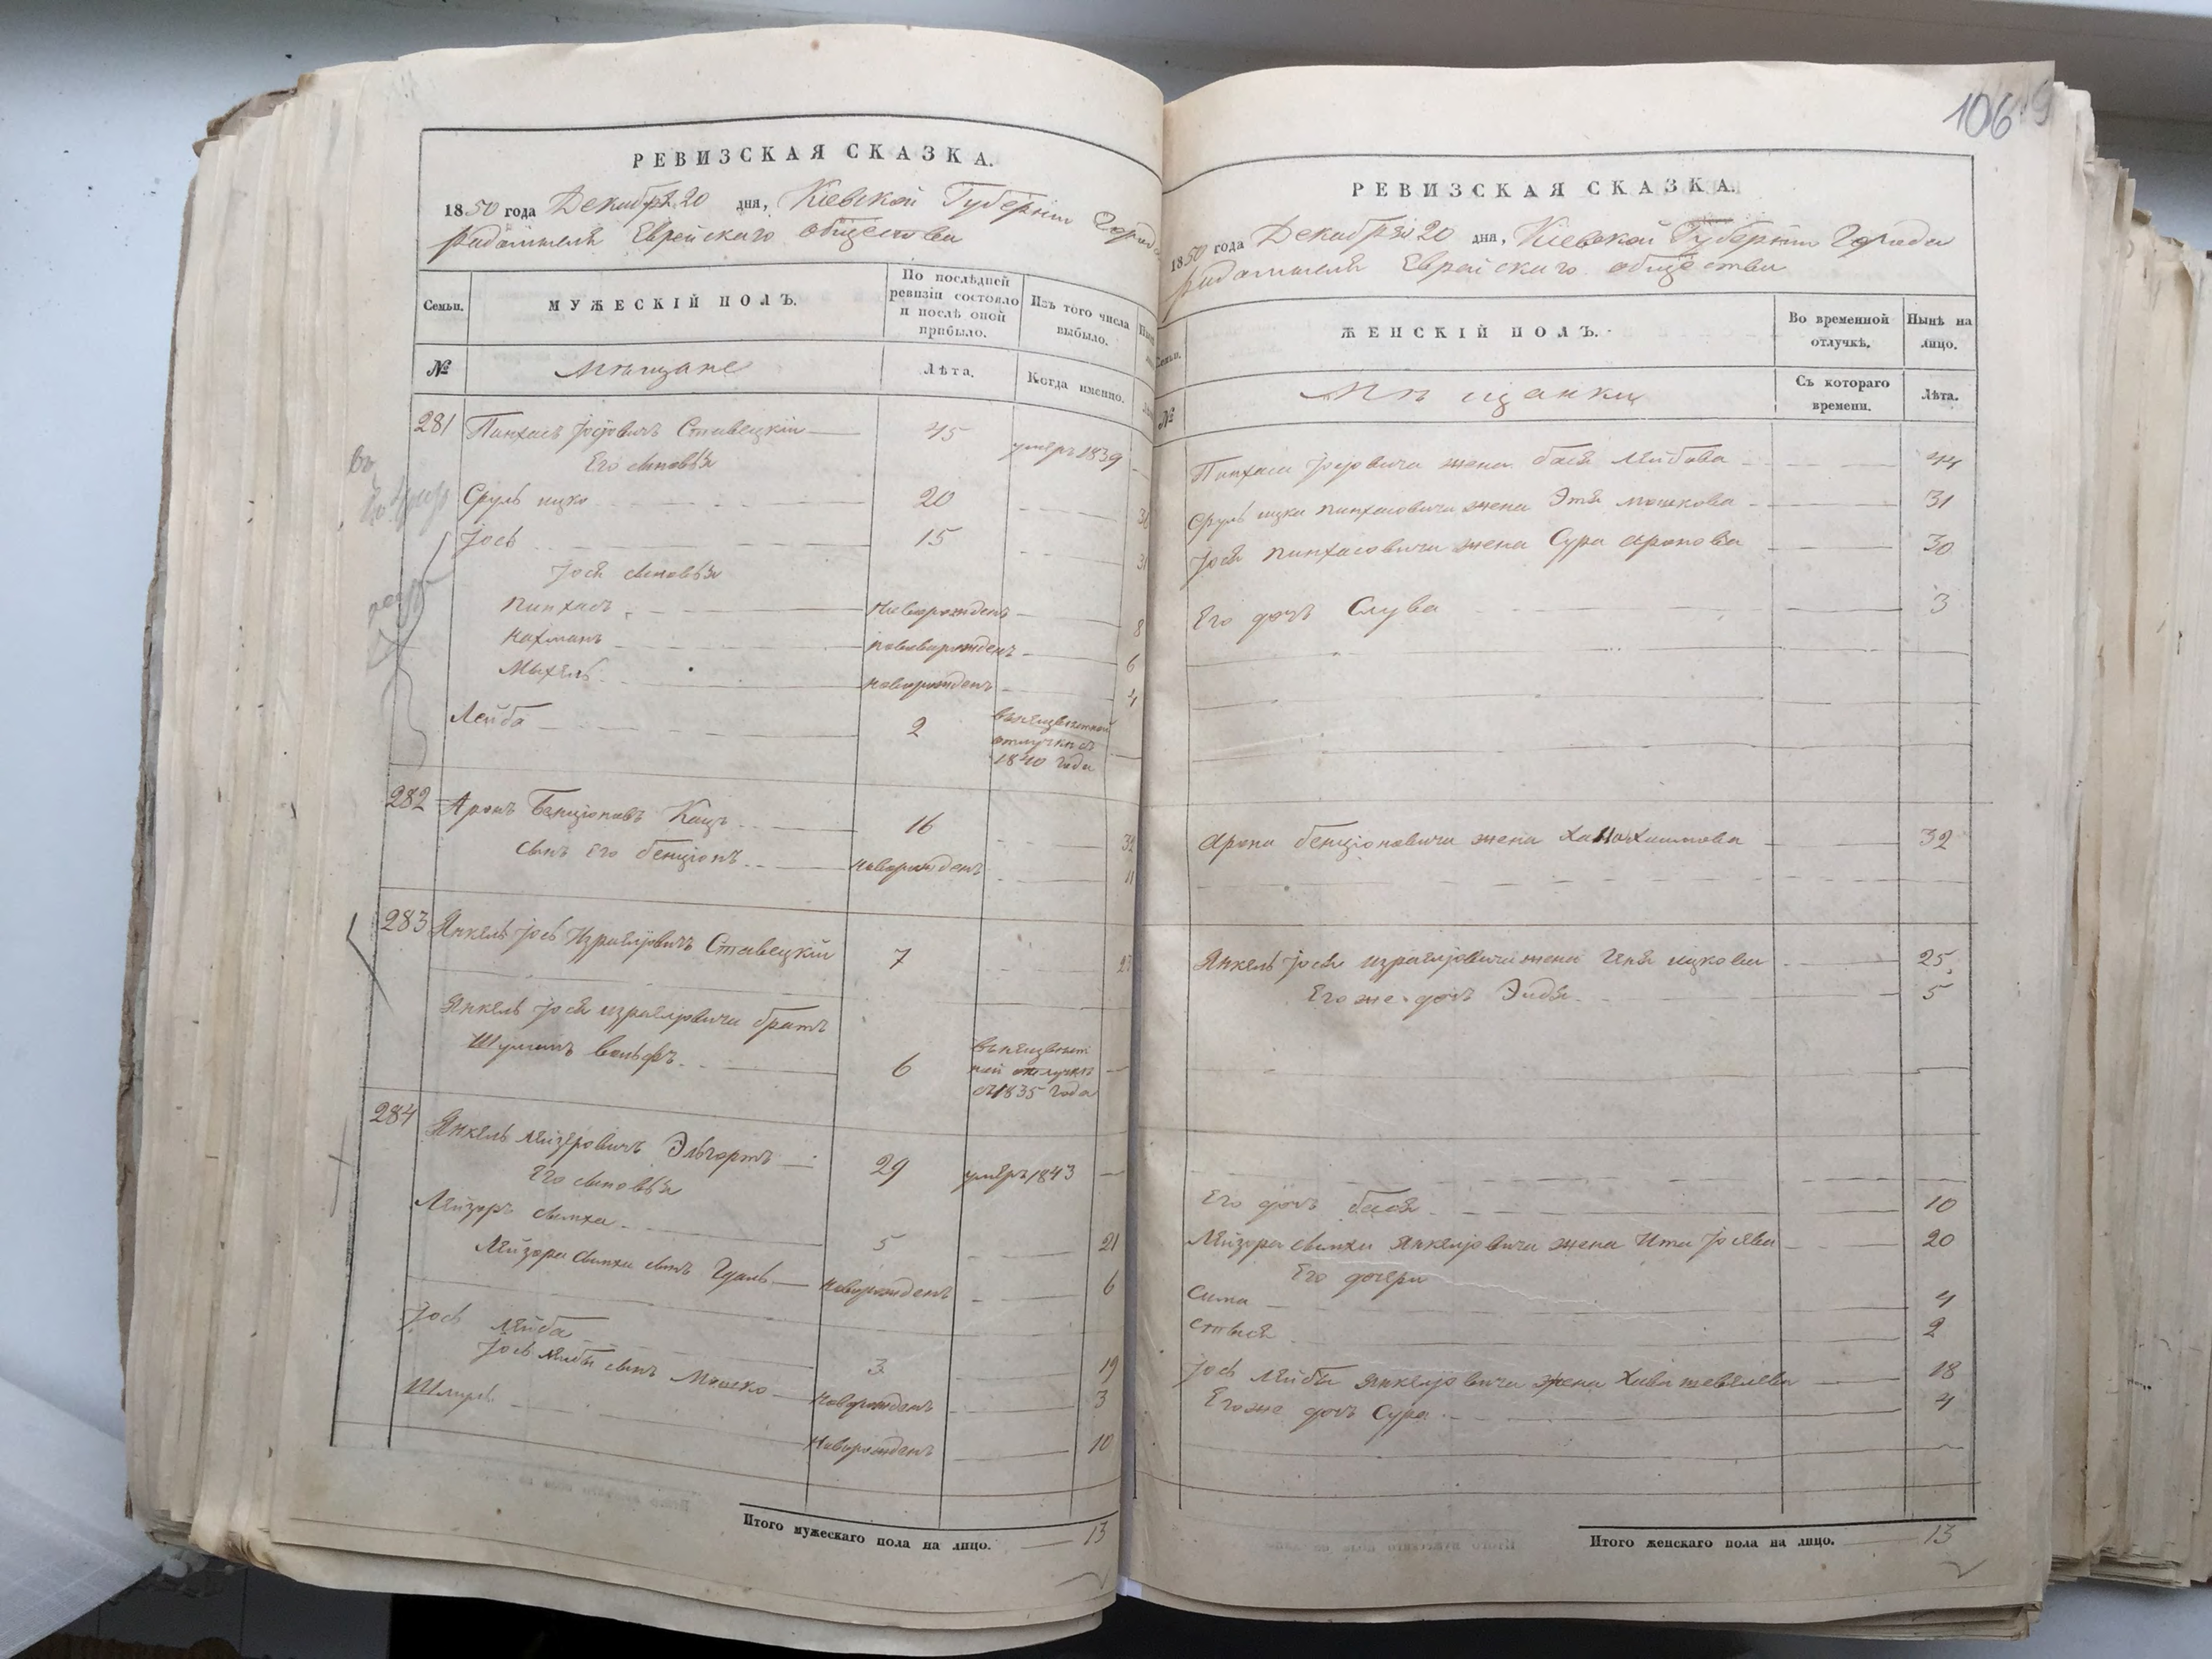 РЕВИЗСКАЯ СКАЗКА.
1850 года Декабря 20 дня, Кіевской Губерніи Город
Радомысля Еврейскаго общества
Семьи.
МУЖЕСКІЙ ПОЛЪ.
По послѣдней ревизіи состояло и послѣ оной прибыло.
Изъ того числа выбыло.
№
Мѣщане
Лѣта.
Когда именно.
281 Пинхасъ Іосіовичъ Ставецкій 45 умеръ 1839
Его сыновья
Сруль ицко 20
Іось 15 31
Іося сыновья
Пинхасъ новорожденъ 8
Нахманъ новорожденъ 6
Мыхель новорожденъ 4
Лейба 2 въ неизвѣстной
отлучкѣ съ
1840 года
282 Аронъ Бенціоновъ Кацъ 16 32
сынъ его бенціонъ новорожденъ 11
283 Янкель Іось Израиліовичъ Ставецкій 7
Янкель Іося израиліовича братъ
Шулимъ вольфъ 6 въ неизвѣст
ной отлучкѣ
съ 1835 года
284 Янкель Лейзеровичъ Эльгортъ 29 умеръ 1843
Его сыновья
Лейзоръ симха 5 21
Лейзора симхи сынъ новорожденъ 6
Іось лейба 3 19
Іось лейбы сынъ Мошко новорожденъ 3
новорожденъ 10
Итого мужескаго пола на лицо. 13
1069
РЕВИЗСКАЯ СКАЗКА.
1850 года Декабря 20 дня, Кіевской Губерніи Города
Радомысля Еврейскаго общества
Семьи.
ЖЕНСКІЙ ПОЛЪ.
Во временной отлучкѣ.
Нынѣ на лицо.
№
Мѣщанки
Съ котораго времени.
Лѣта.
Пинхаса Іосіовича жена бася лейбова 44
Сруль ицки пинхасовича жена Этя мошкова 31
Іося пинхасовича жена Сура аронова 30
Его дочь Слува 3
Арона бенціоновича жена Хана 32
Янкель Іося израиліовича жена ицкова 25
Его же дочь Эидя 5
Его дочь бася 10
Лейзора симхи янкеліовича жена Ита Іосева 20
Его дочери
Сима 4
2
Іось лейбы янкеліовича жена Хава шевелева 18
Его же дочь Сура 4
Итого женскаго пола на лицо. 13